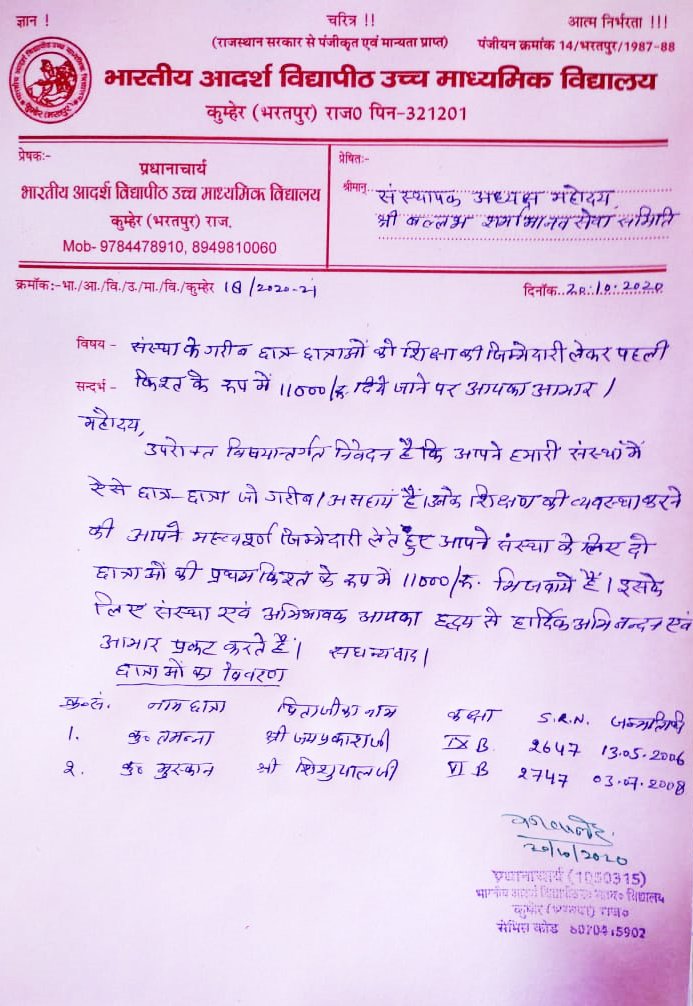 ज्ञान ! चरित्र !! आत्म निर्भरता !!!
(राजस्थान सरकार से पंजीकृत एवं मान्यता प्राप्त) पंजीयन क्रमांक 14/भरतपुर/1987-88
भारतीय आदर्श विद्यापीठ उच्च माध्यमिक विद्यालय
कुम्हेर (भरतपुर) राज0 पिन-321201
प्रेषकः-
प्रधानाचार्य
भारतीय आदर्श विद्यापीठ उच्च माध्यमिक विद्यालय
कुम्हेर (भरतपुर) राज.
Mob- 9784478910, 8949810060
प्रेषितः-
श्रीमान् संस्थापक अध्यक्ष महोदय,
श्री बल्लभ शर्मा मानव सेवा समिति
क्रमाँकः-भा./आ./वि./उ./मा./वि./कुम्हेर 18/2020-21 दिनाँक 20.10.2020
विषय - संस्था के गरीब छात्र-छात्राओं की शिक्षा की जिम्मेदारी लेकर पहली
सन्दर्भ - किश्त के रूप में 11000/रू. दिये जाने पर आपका आभार।
महोदय,
उपरोक्त विषयान्तर्गत निवेदन है कि आपने हमारी संस्था में
ऐसे छात्र-छात्रा जो गरीब/असहाय हैं। उनके शिक्षण की व्यवस्था करने
की आपने महत्वपूर्ण जिम्मेदारी लेते हुए आपने संस्था के लिए दो
छात्राओं की प्रथम किश्त के रूप में 11000/रू. भिजवाये हैं। इसके
लिए संस्था एवं अभिभावक आपका हृदय से हार्दिक अभिनन्दन एवं
आभार प्रकट करते हैं। सधन्यवाद।
छात्राओं का विवरण
क्र.सं. नाम छात्रा पिताजी का नाम कक्षा S.R.N. जन्मतिथि
1. कु० तमन्ना श्री जयप्रकाश जी IX B 2647 13.05.2006
२. कु० मुस्कान श्री शिशुपाल जी VI B 2747 03.07.2008
20/10/2020
प्रधानाचार्य (1050315)
भारतीय आदर्श विद्यापीठ उ० मा० विद्यालय
कुम्हेर (भरतपुर) राज०